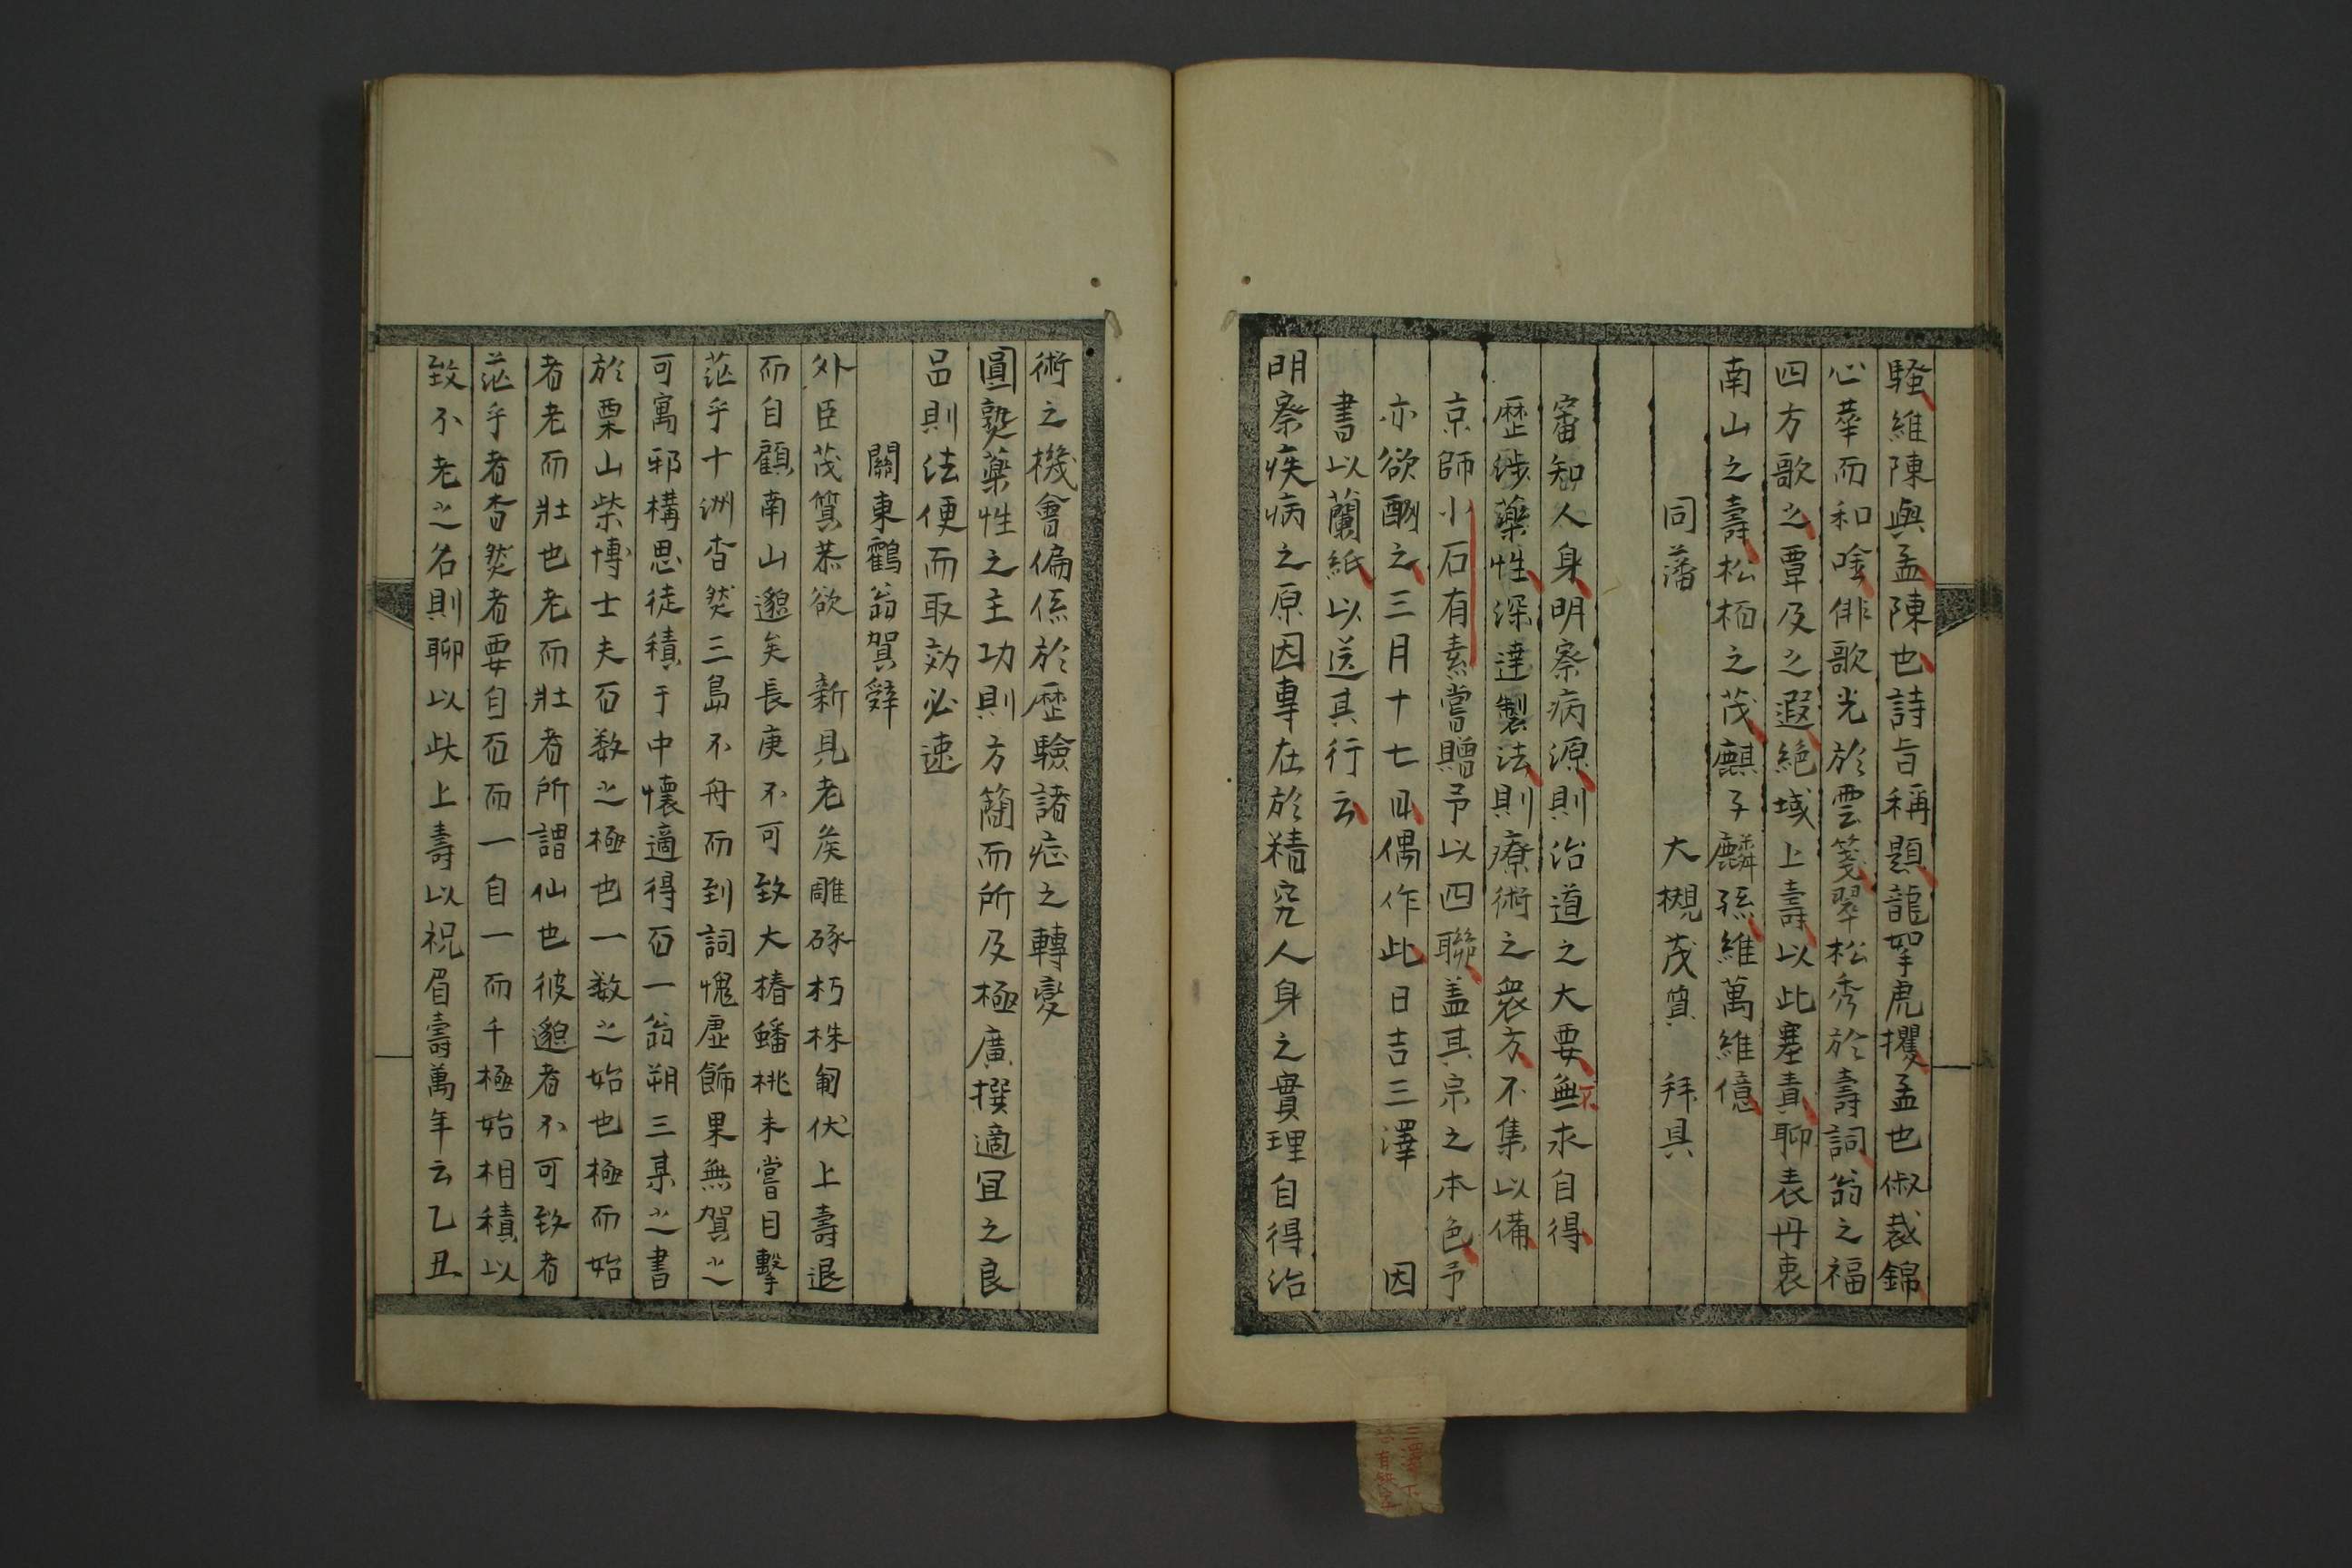 騷維陳與孟陳也詩旨稱題龍拏虎攫孟也俶裁錦
心華而和唫俳歌光於雲箋翠松秀於壽詞翁之福
四方歌之覃及之遐絶域上壽以此塞責聊表丹衷
南山之壽松栢之茂麒子麟孫維萬維億
同藩　大槻茂質　拜具
審知人身明察病源則治道之大要無求自得
不
歴渉藥性深達製法則療術之衆方不集以備
京師小石有素嘗贈予以四聯盖其宗之本色予
亦欲酬之三月十七日偶作此日吉三澤　因
書以蘭紙以送其行云
明察疾病之原因專在於精究人身之實理自得治
術之機會偏係於歴驗諸症之轉變
圓熟藥性之主功則方簡而所及極廣撰適宜之良
品則法便而取効必速
關東鶴翁賀辤
外臣茂質恭欲　新見老矦雕琢朽株匍伏上壽退
而自顧南山邈矣長庚不可致大椿蟠桃未嘗目擊
茫乎十洲杳然三島不舟而到詞愧虚飾果無賀之
可寓邪構思徒積于中懷適得百一翁朔三某之書
於栗山柴博士夫百数之極也一数之始也極而始
者老而壯也老而壯者所謂仙也彼邈者不可致者
茫乎者杳然者要自百而一自一而千極始相積以
致不老之名則聊以此上壽以祝眉壽萬年云乙丑
三澤下
有缺字